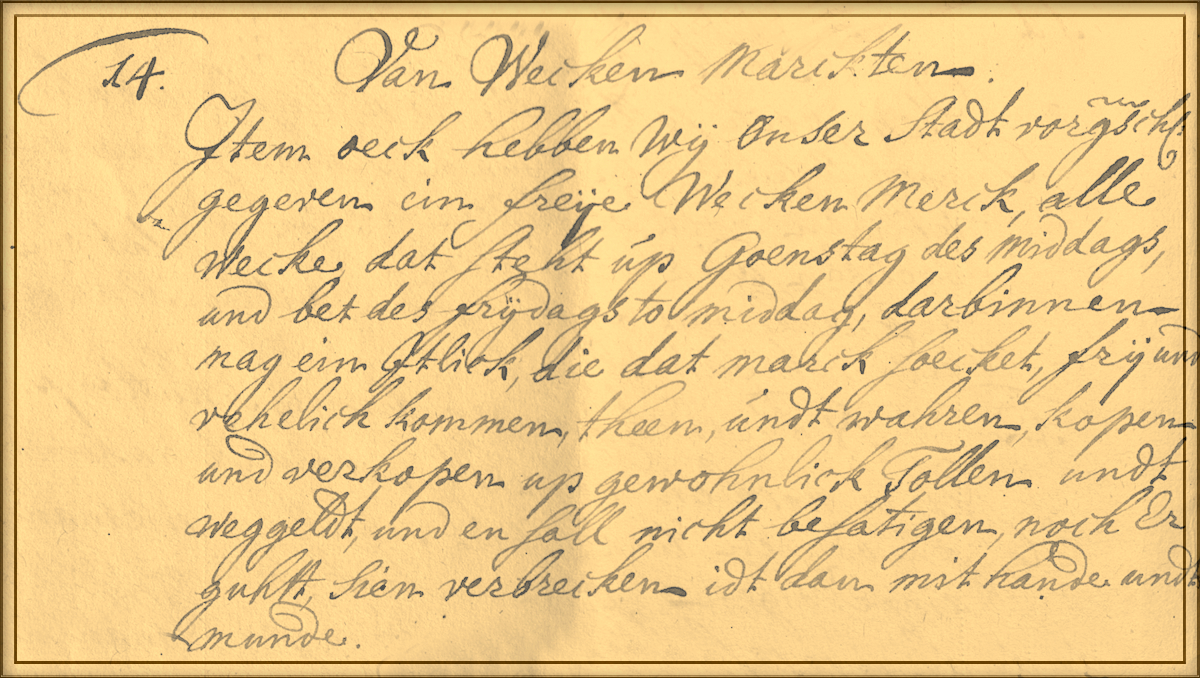 14. Van Wecken Märckten.
Item oeck hebben Wÿ Onser Stadt
gegeven ein freÿe Wecken Merck, alle
wecke, dat steht úp Goenstag des middags,
und bet des frÿdags to middag, darbinnen
mag ein Itlick, die dat marck soecket, frÿ und
vehelich kommen, theen, úndt wahren, kopen
und verkopen up gewohnlick Tollen undt
weggeldt, und en sall nicht besatigen, noch Er
sien verbrecken idt dan mit hande undt
munde.